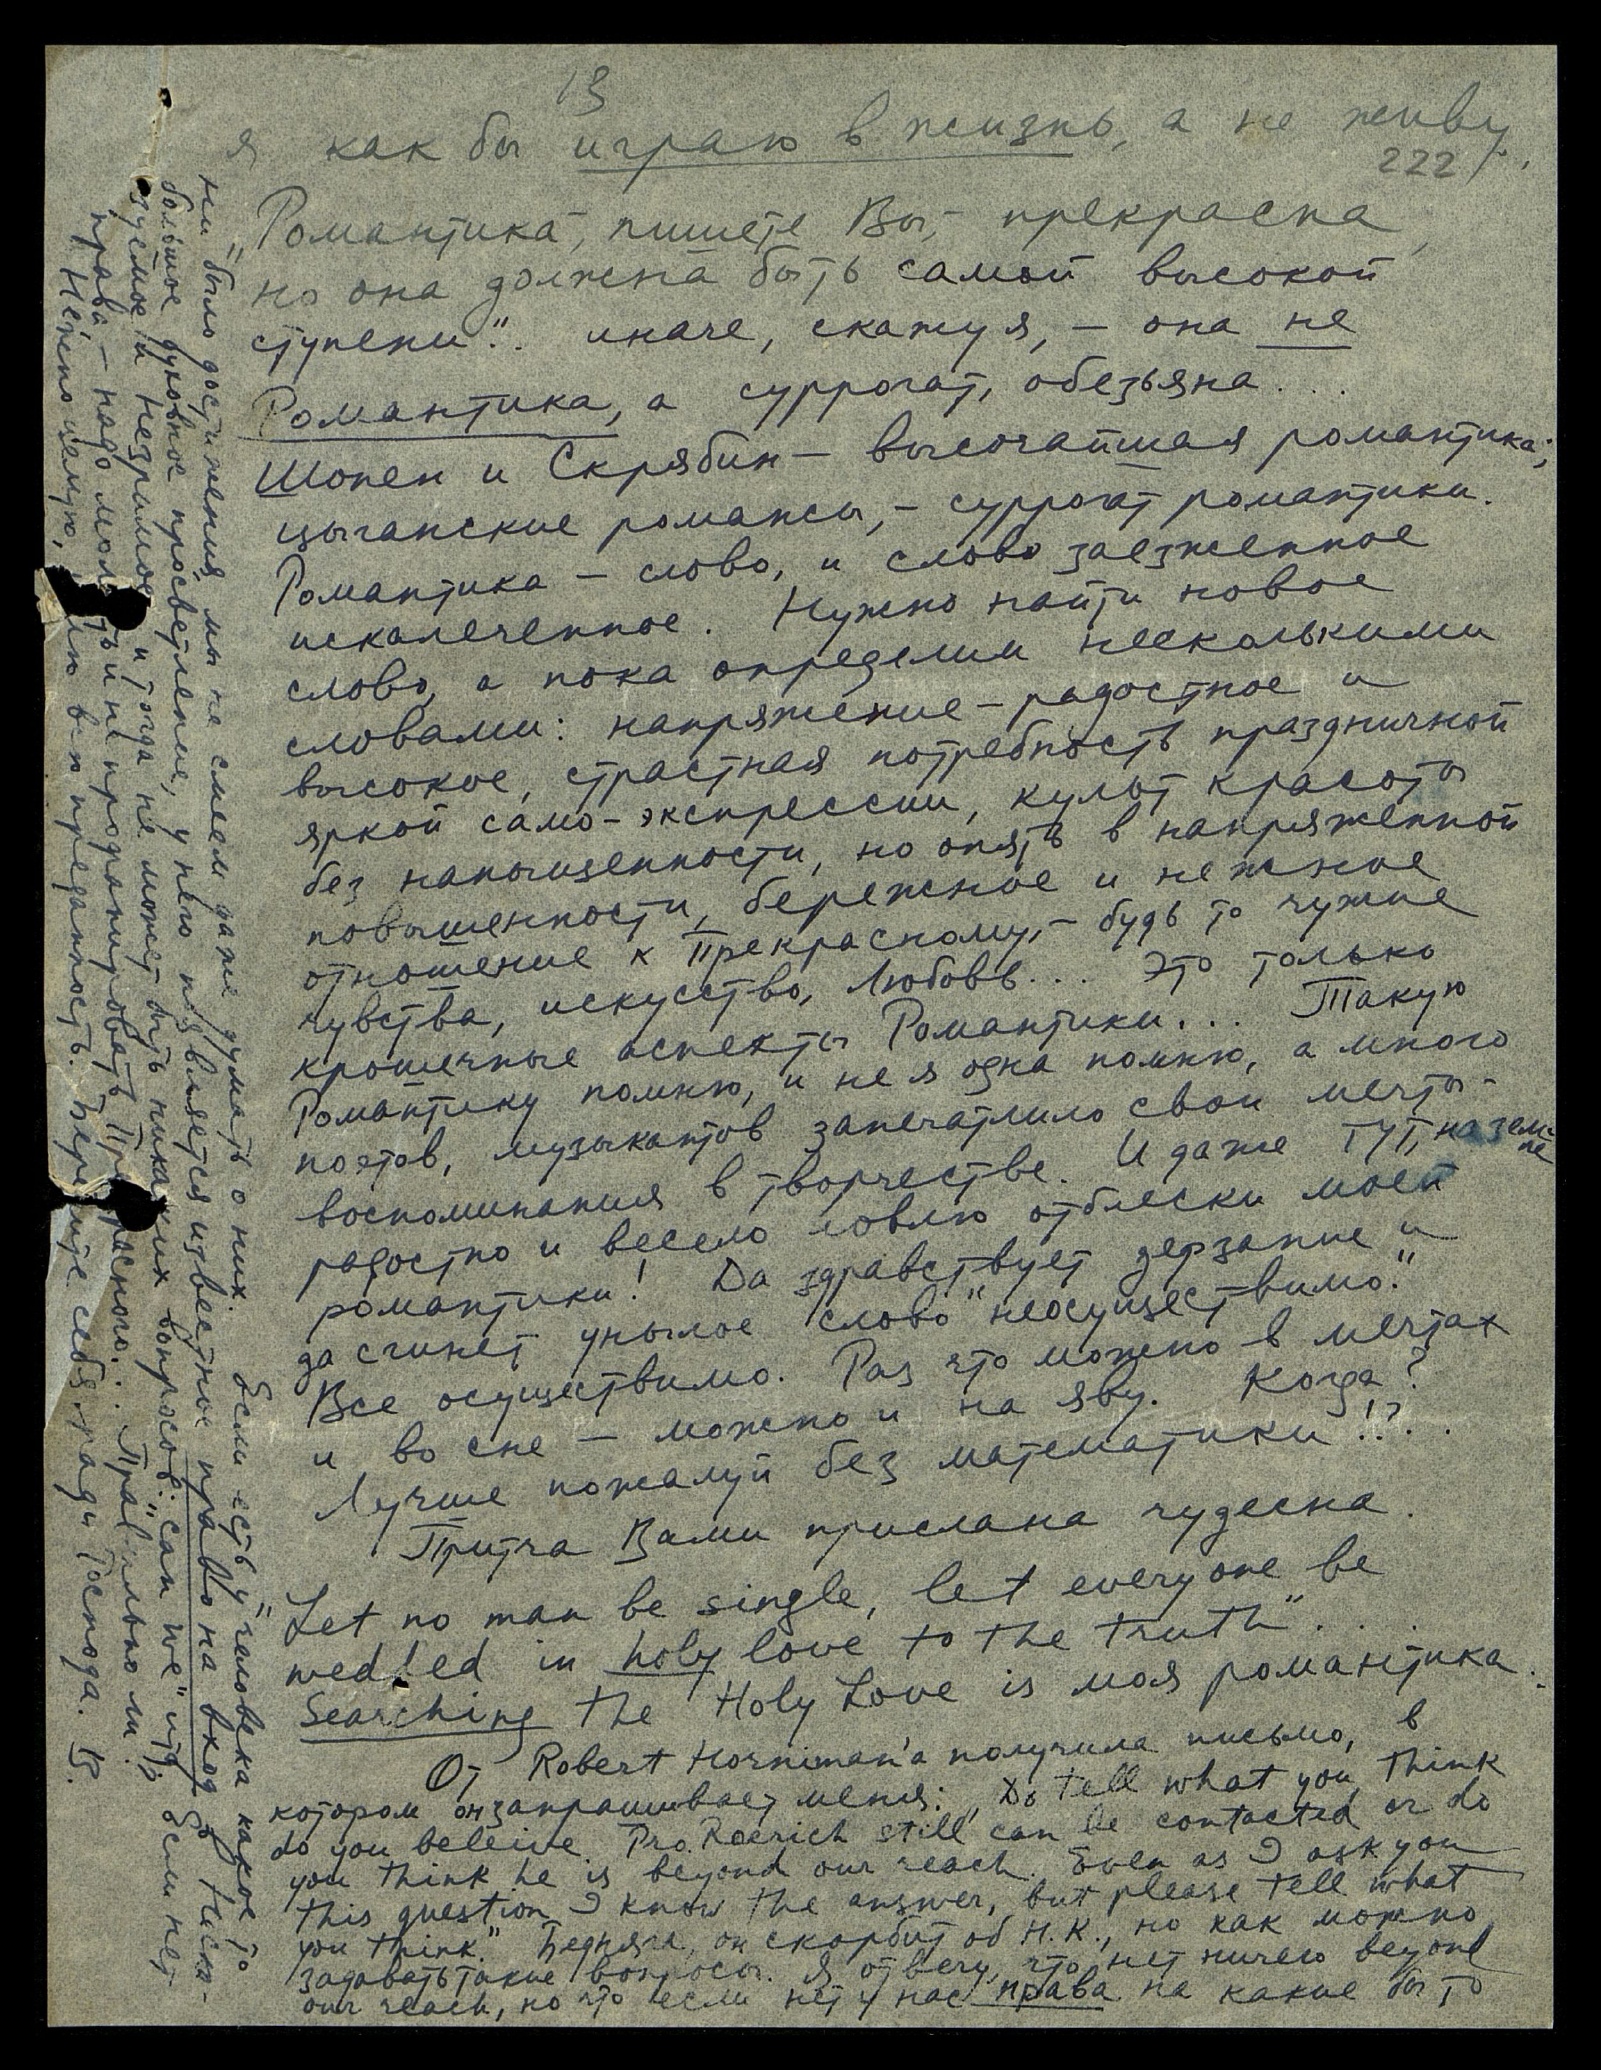 13
222
я как бы играю в жизнь, а не живу.
"Романтика, пишете Вы, – прекрасна,
но она должна быть самой высокой
ступени".. иначе, скажу я, – она не
Романтика, а суррогат, обезьяна...
Шопен и Скрябин – высочайшая романтика;
цыганские романсы, – суррогат романтики.
Романтика – слово, и слово заезженное
искалеченное. Нужно найти новое
слово, а пока определим несколькими
словами: напряжение – радостное и
высокое, страстная потребность праздничной
яркой само-экспрессии, культ красоты
без напыщенности, но опять в напряженной
повышенности, бережное и нежное
отношение к Прекрасному, – будь то чужие
чувства, искусство, Любовь... Это только
крошечные аспекты Романтики... Такую
Романтику помню, и не я одна помню, а много
поэтов, музыкантов запечатлило свои мечты-
воспоминания в творчестве. И даже тут, на земле
радостно и весело ловлю отблески моей
романтики! Да здравствует дерзание и
да сгинет унылое слово "неосуществимо".
Все осуществимо. Раз что можно в мечтах
и во сне – можно и на яву. Когда?
Лучше пожалуй без математики!!?..
Притча Вами прислана чудесна.
Let no man be single, let everyone be
wedded in holy love to the truth"...
Searching the Holy Love is моя романтика.
От Robert Horniman'а получила письмо, в
котором он запрашивает меня: "Do tell what you think
do you beleive Pro. Roerich still can be contacted or do
you think he is beyond our reach. Even as I ask you
this question I know the answer, but please tell what
you think." Бедняга, он скорбит об Н.К., но как можно
задавать такие вопросы. Я отвечу, что нет ничего beyond
our reach, но что если нет у нас права на какие бы то
ни было достижения, мы не смеем даже думать о них. Если есть у человека какое то
большое духовное просветление, у него появляется известное право на вход в Неска-
зуемое и Незримое и тогда не может быть никаких вопросов: "can we" итд; Если нет
права, – надо молчать и не профанировать Прекрасного... Правильно ли?
Нежно целую, шлю всю преданность. Берегите себя ради Господа.